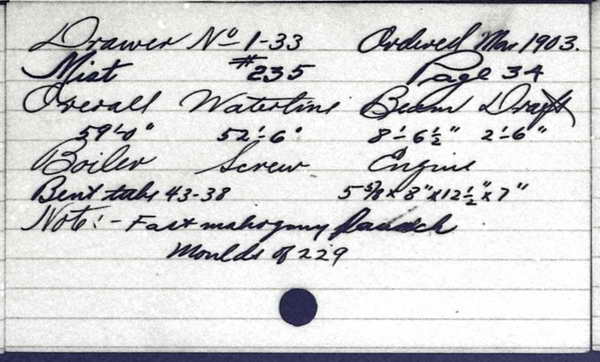 Drawer No 1-33 Ordered Mar 1903.
Mist #235 Page 34
Overall Waterline Beam Draft
59'-0" 52'-6" 8'-6½" 2'-6"
Boiler Screw Engine
Bent tube 43-38 5⅝x8"x12½"x7"
Note:- Fast mahogany launch
Moulds of 229